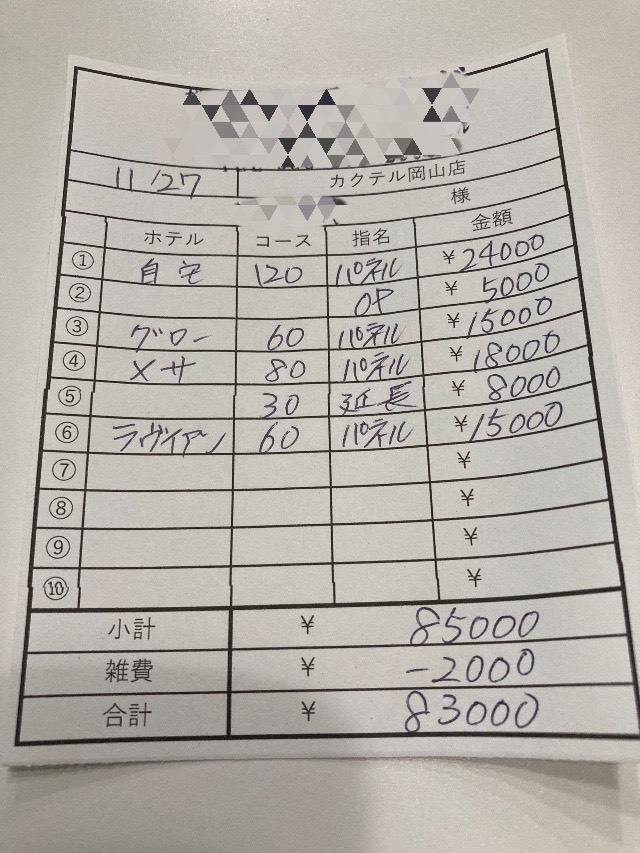 11/27 カクテル岡山店
様
ホテル コース 指名 金額
① 自宅 120 パネル ¥24000
② OP ¥5000
③ グロー 60 パネル ¥15000
④ メサ 80 パネル ¥18000
⑤ 30 延長 ¥8000
⑥ ラヴィアン 60 パネル ¥15000
⑦ ¥
⑧ ¥
⑨ ¥
⑩ ¥
小計 ¥ 85000
雑費 ¥ -2000
合計 ¥ 83000